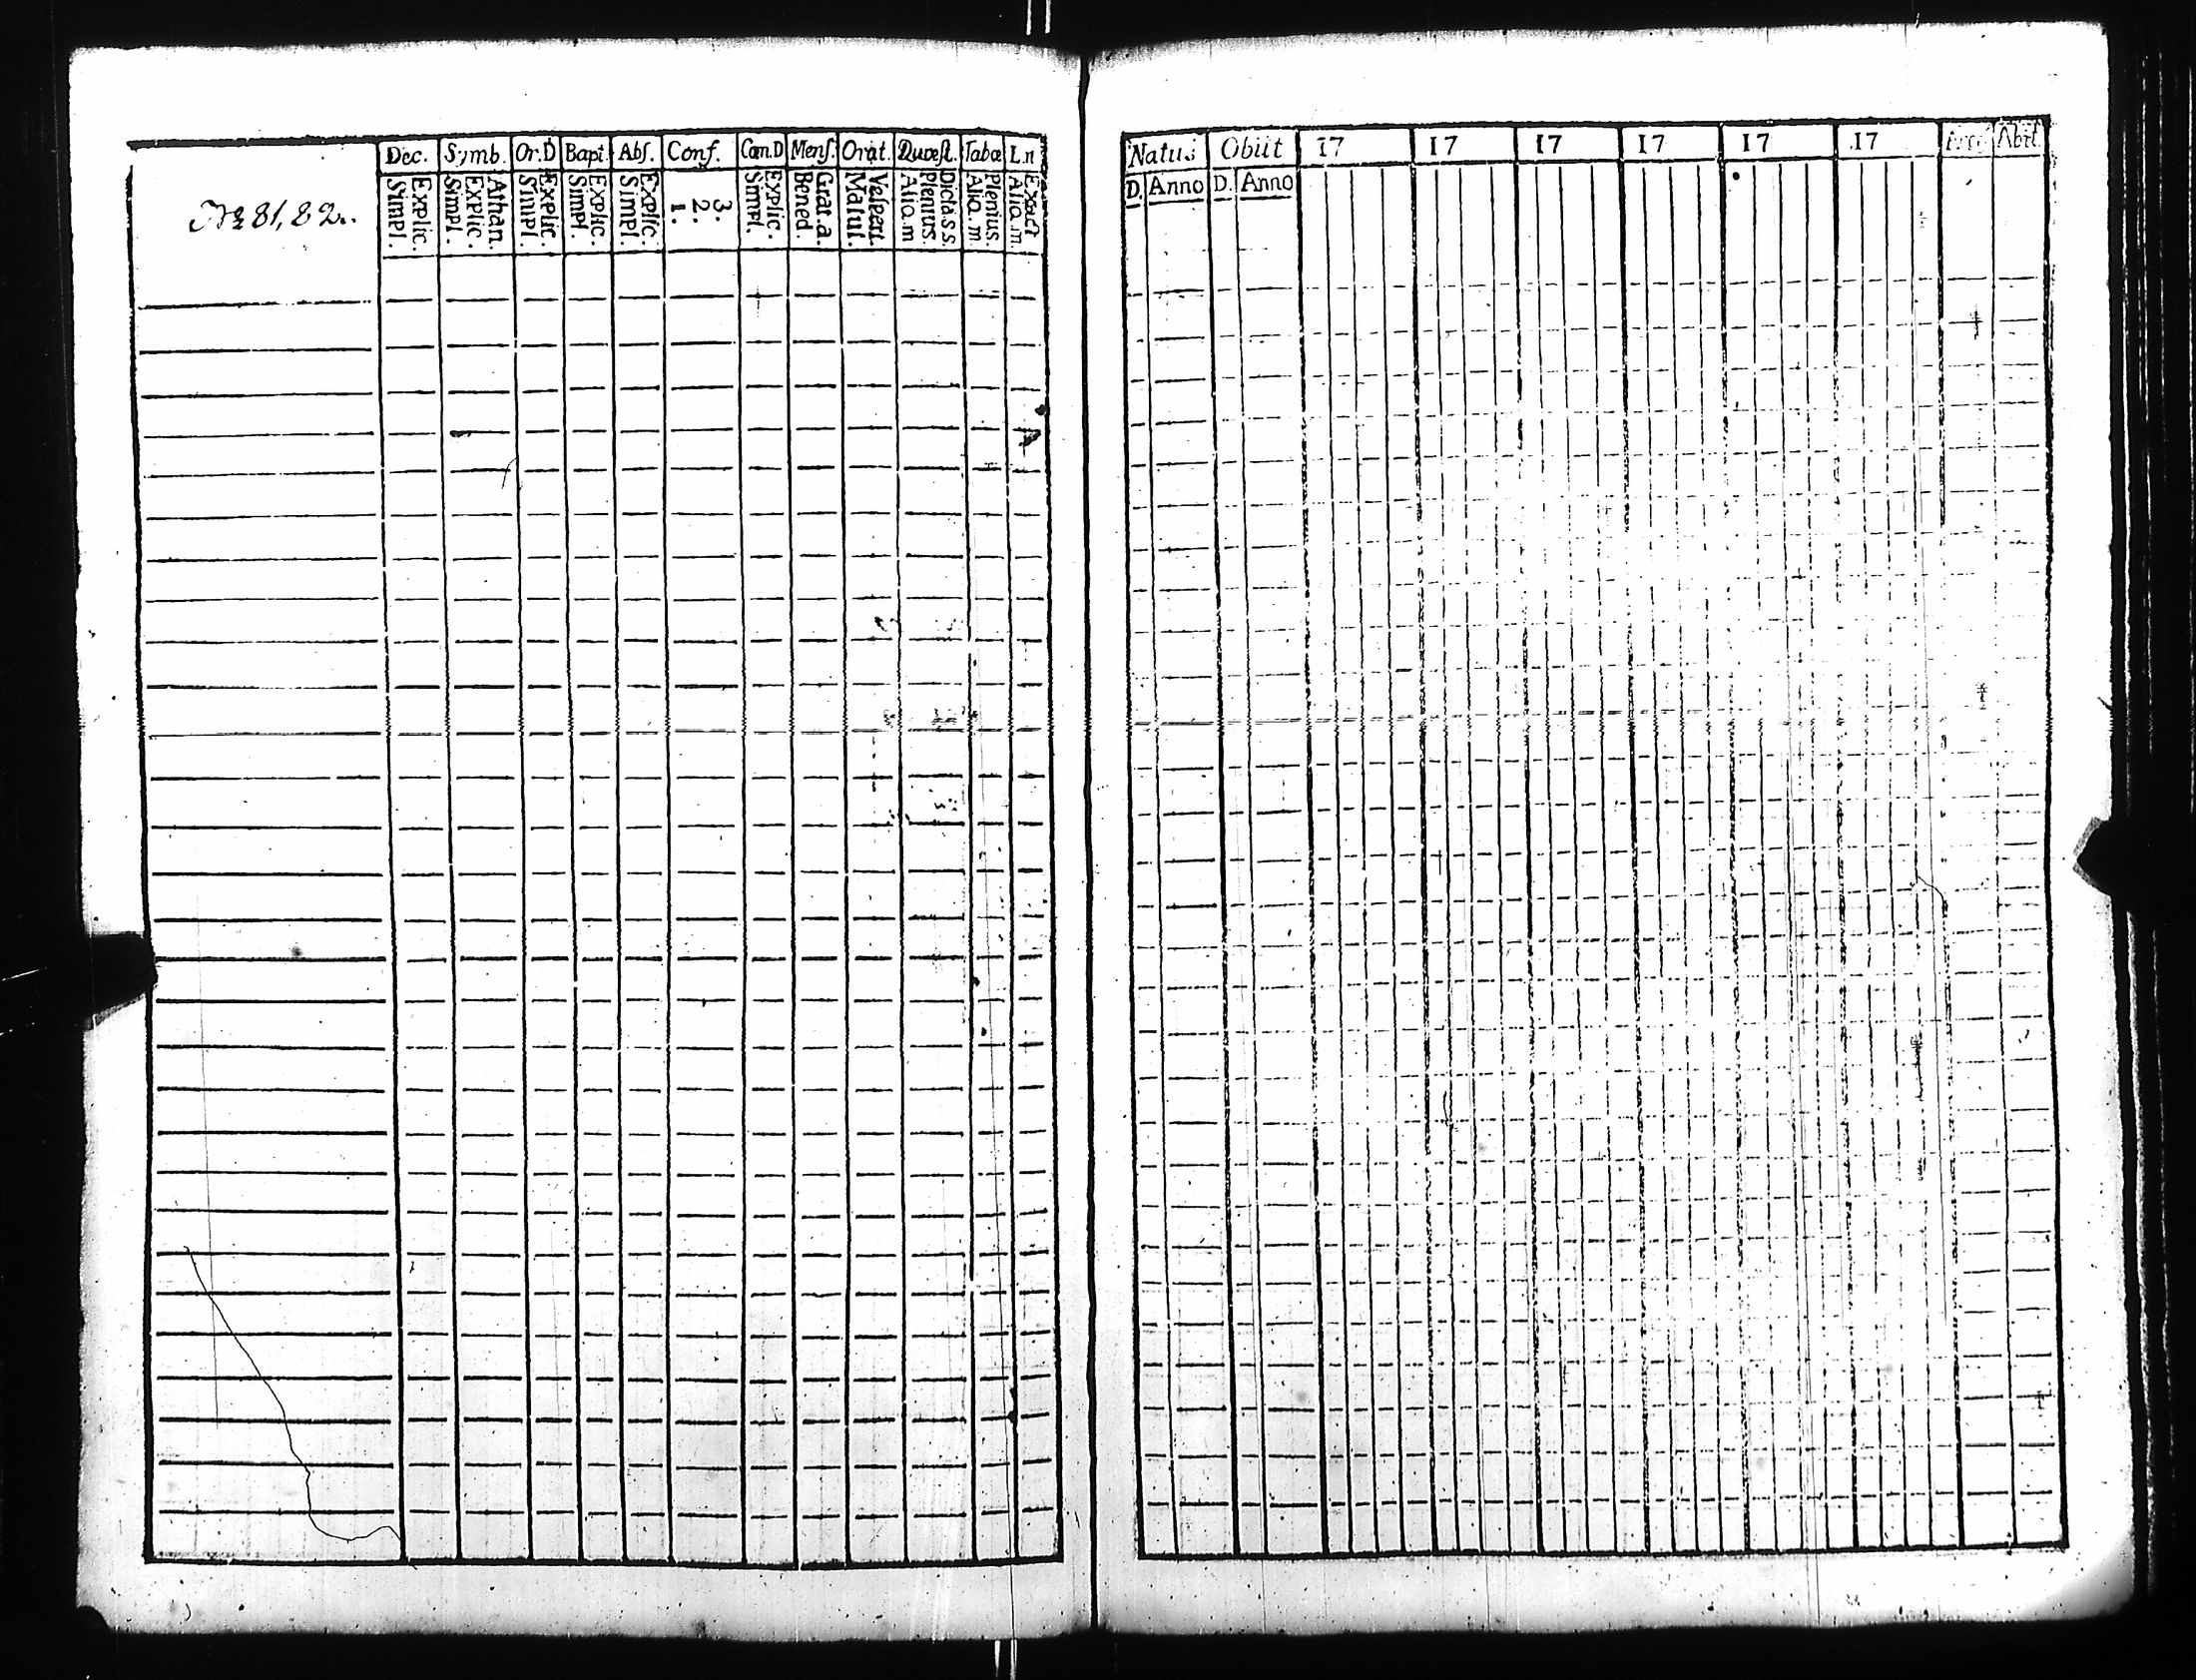 Dec. Symb. Or.D Bapt. Abs. Conf. Cœn.D Mens. Orat. Quæst. Tabœ L.n
№ 81, 82.
Explic. Simpl.
Athan. Explic. Simpl.
Explic. Simpl.
Explic. Simpl.
Explic. Simpl.
3. 2. 1.
Explic. Simpl.
Grat.a. Bened.
Vespert. Matut.
Dicta.s.s. Plenius. Aliq.m
Plenius. Aliq.m.
Exact Aliq.m.
Natus Obiit 17 17 17 17 17 17 Abit.
D. Anno D. Anno